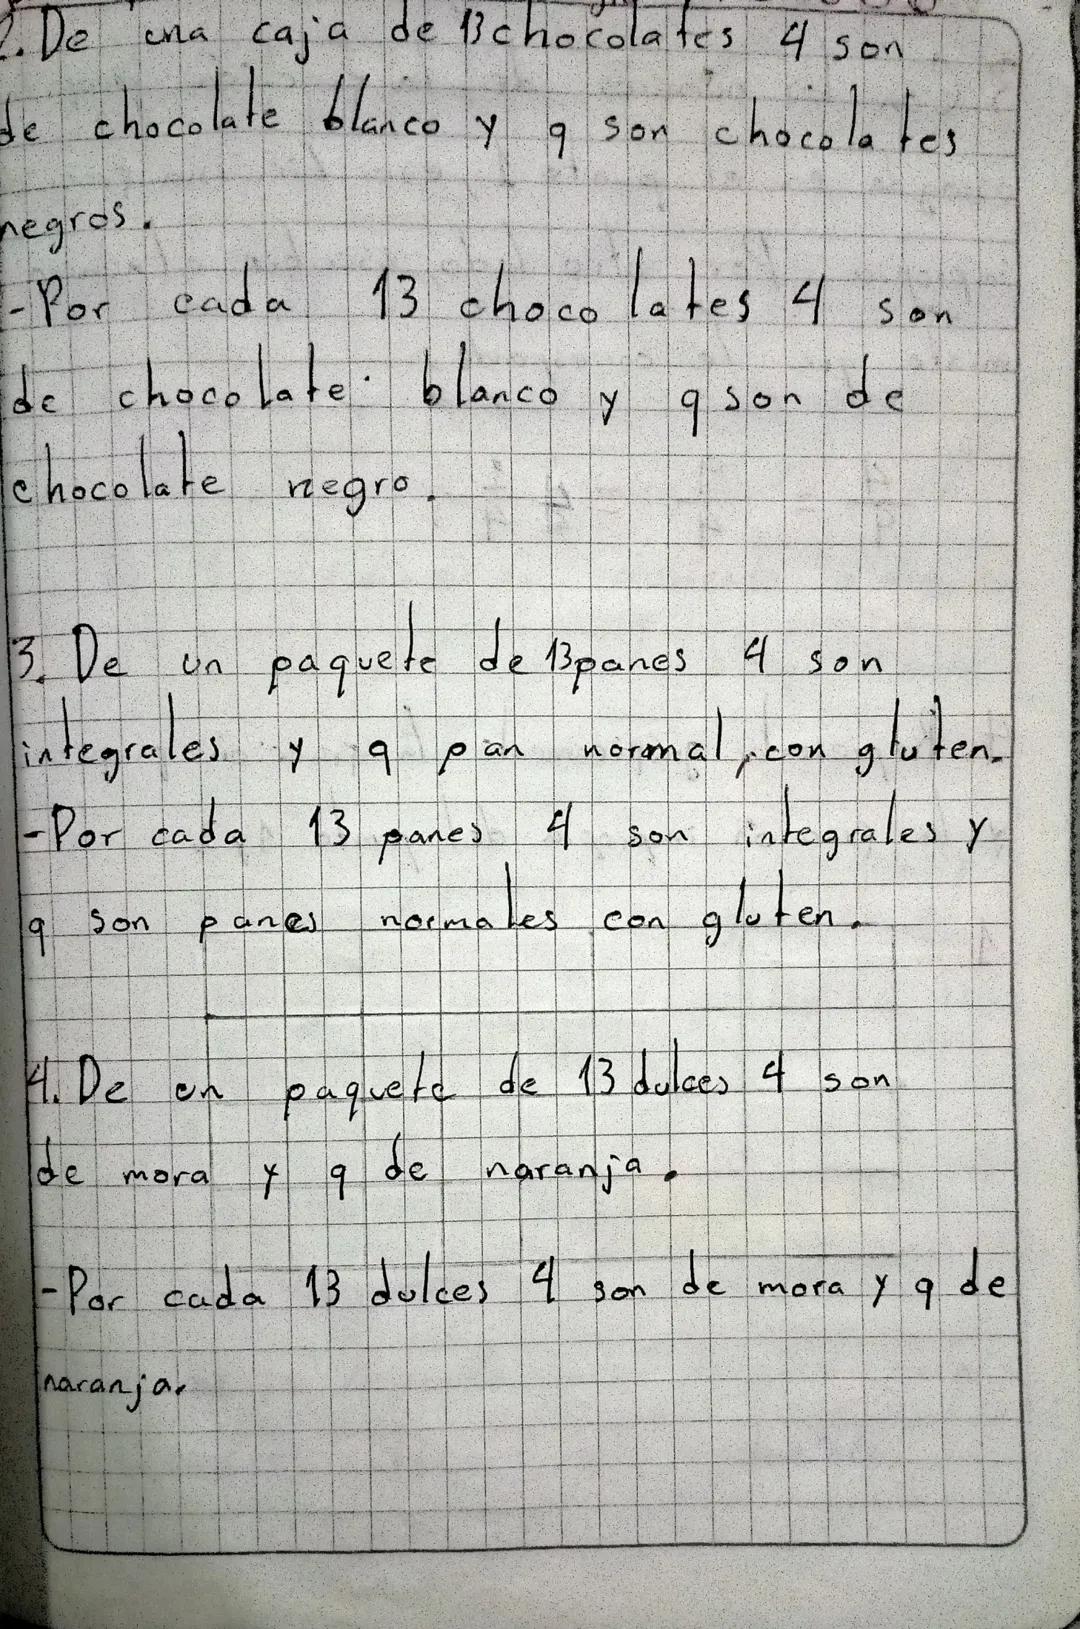 2. De una caja de 13 chocolates 4 son
de chocolate blanco y 9 son chocolates
negros.
-Por cada 13 chocolates 4 son
de chocolate blanco y 9 son de
chocolate negro.
3. De un paquete de 13 panes 4 son
integrales y 9 pan normal, con gluten.
-Por cada 13 panes 4 son integrales y
9 son panes normales con gluten.
4. De un paquete de 13 dulces 4 son
de mora y 9 de naranja.
-Por cada 13 dulces 4 son de mora y 9 de
naranja.